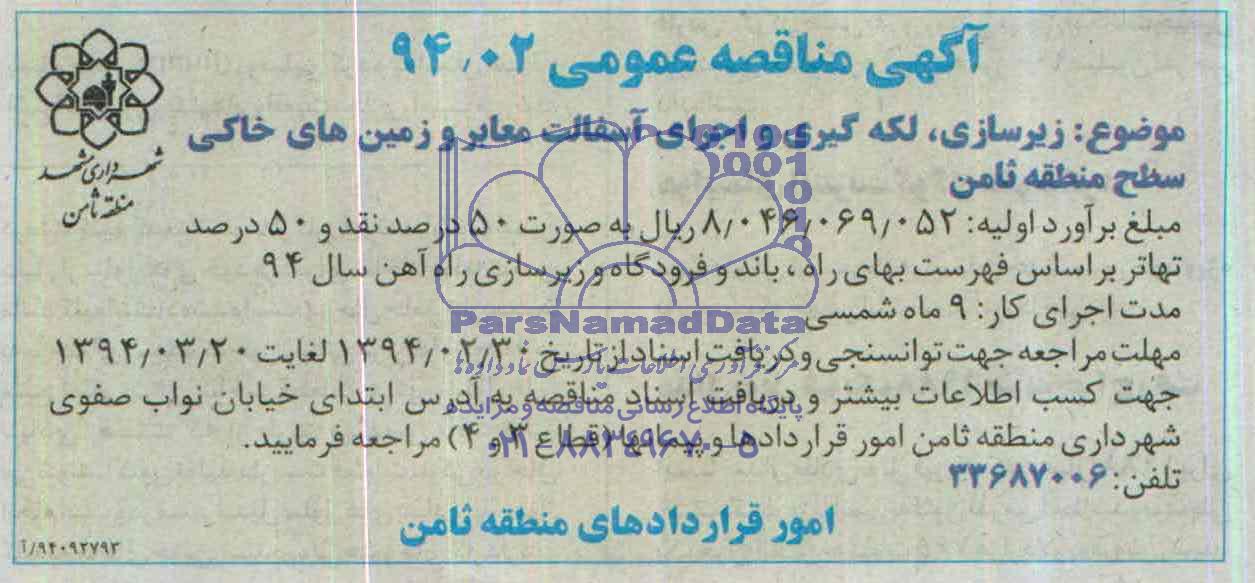 آگهی مناقصه عمومی ۹۴٫۰۲
شهرداری مشهد
منطقه ثامن
موضوع: زیرسازی، لکه گیری و اجرای آسفالت معابر و زمین های خاکی
سطح منطقه ثامن
مبلغ برآورد اولیه: ۸/۰۴۶/۰۶۹/۰۵۲ ریال به صورت ۵۰ درصد نقد و ۵۰ درصد
تهاتر براساس فهرست بهای راه ، باند و فرودگاه و زیرسازی راه آهن سال ۹۴
مدت اجرای کار: ۹ ماه شمسی
ParsNamadData
مهلت مراجعه جهت توانسنجی و دریافت اسناد از تاریخ ۱۳۹۴/۰۲/۳۰ لغایت ۱۳۹۴/۰۳/۲۰
مرکز فرآوری اطلاعات پارس نماد داده ها
جهت کسب اطلاعات بیشتر و دریافت اسناد مناقصه به آدرس ابتدای خیابان نواب صفوی
پایگاه اطلاع رسانی مناقصه و مزایده
شهرداری منطقه ثامن امور قراردادها و پیمانها (قطاع ۳ و ۴) مراجعه فرمایید.
۰۲۱-۸۸۳۴۹۶۷۰-۵
تلفن: ۳۳۶۸۷۰۰۶
امور قراردادهای منطقه ثامن
۹۴۰۹۲۷۹۳/آ